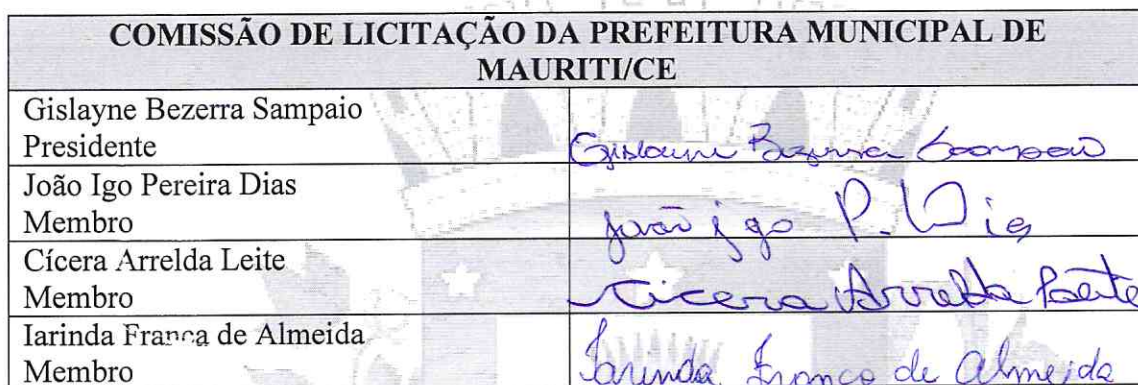 COMISSÃO DE LICITAÇÃO DA PREFEITURA MUNICIPAL DE
MAURITI/CE
Gislayne Bezerra Sampaio
Presidente
Gislayne Bezerra Sampaio
João Igo Pereira Dias
Membro
João igo P. Dias
Cícera Arrelda Leite
Membro
Cicera Arrelda Leite
Iarinda Franca de Almeida
Membro
Iarinda Franca de Almeida